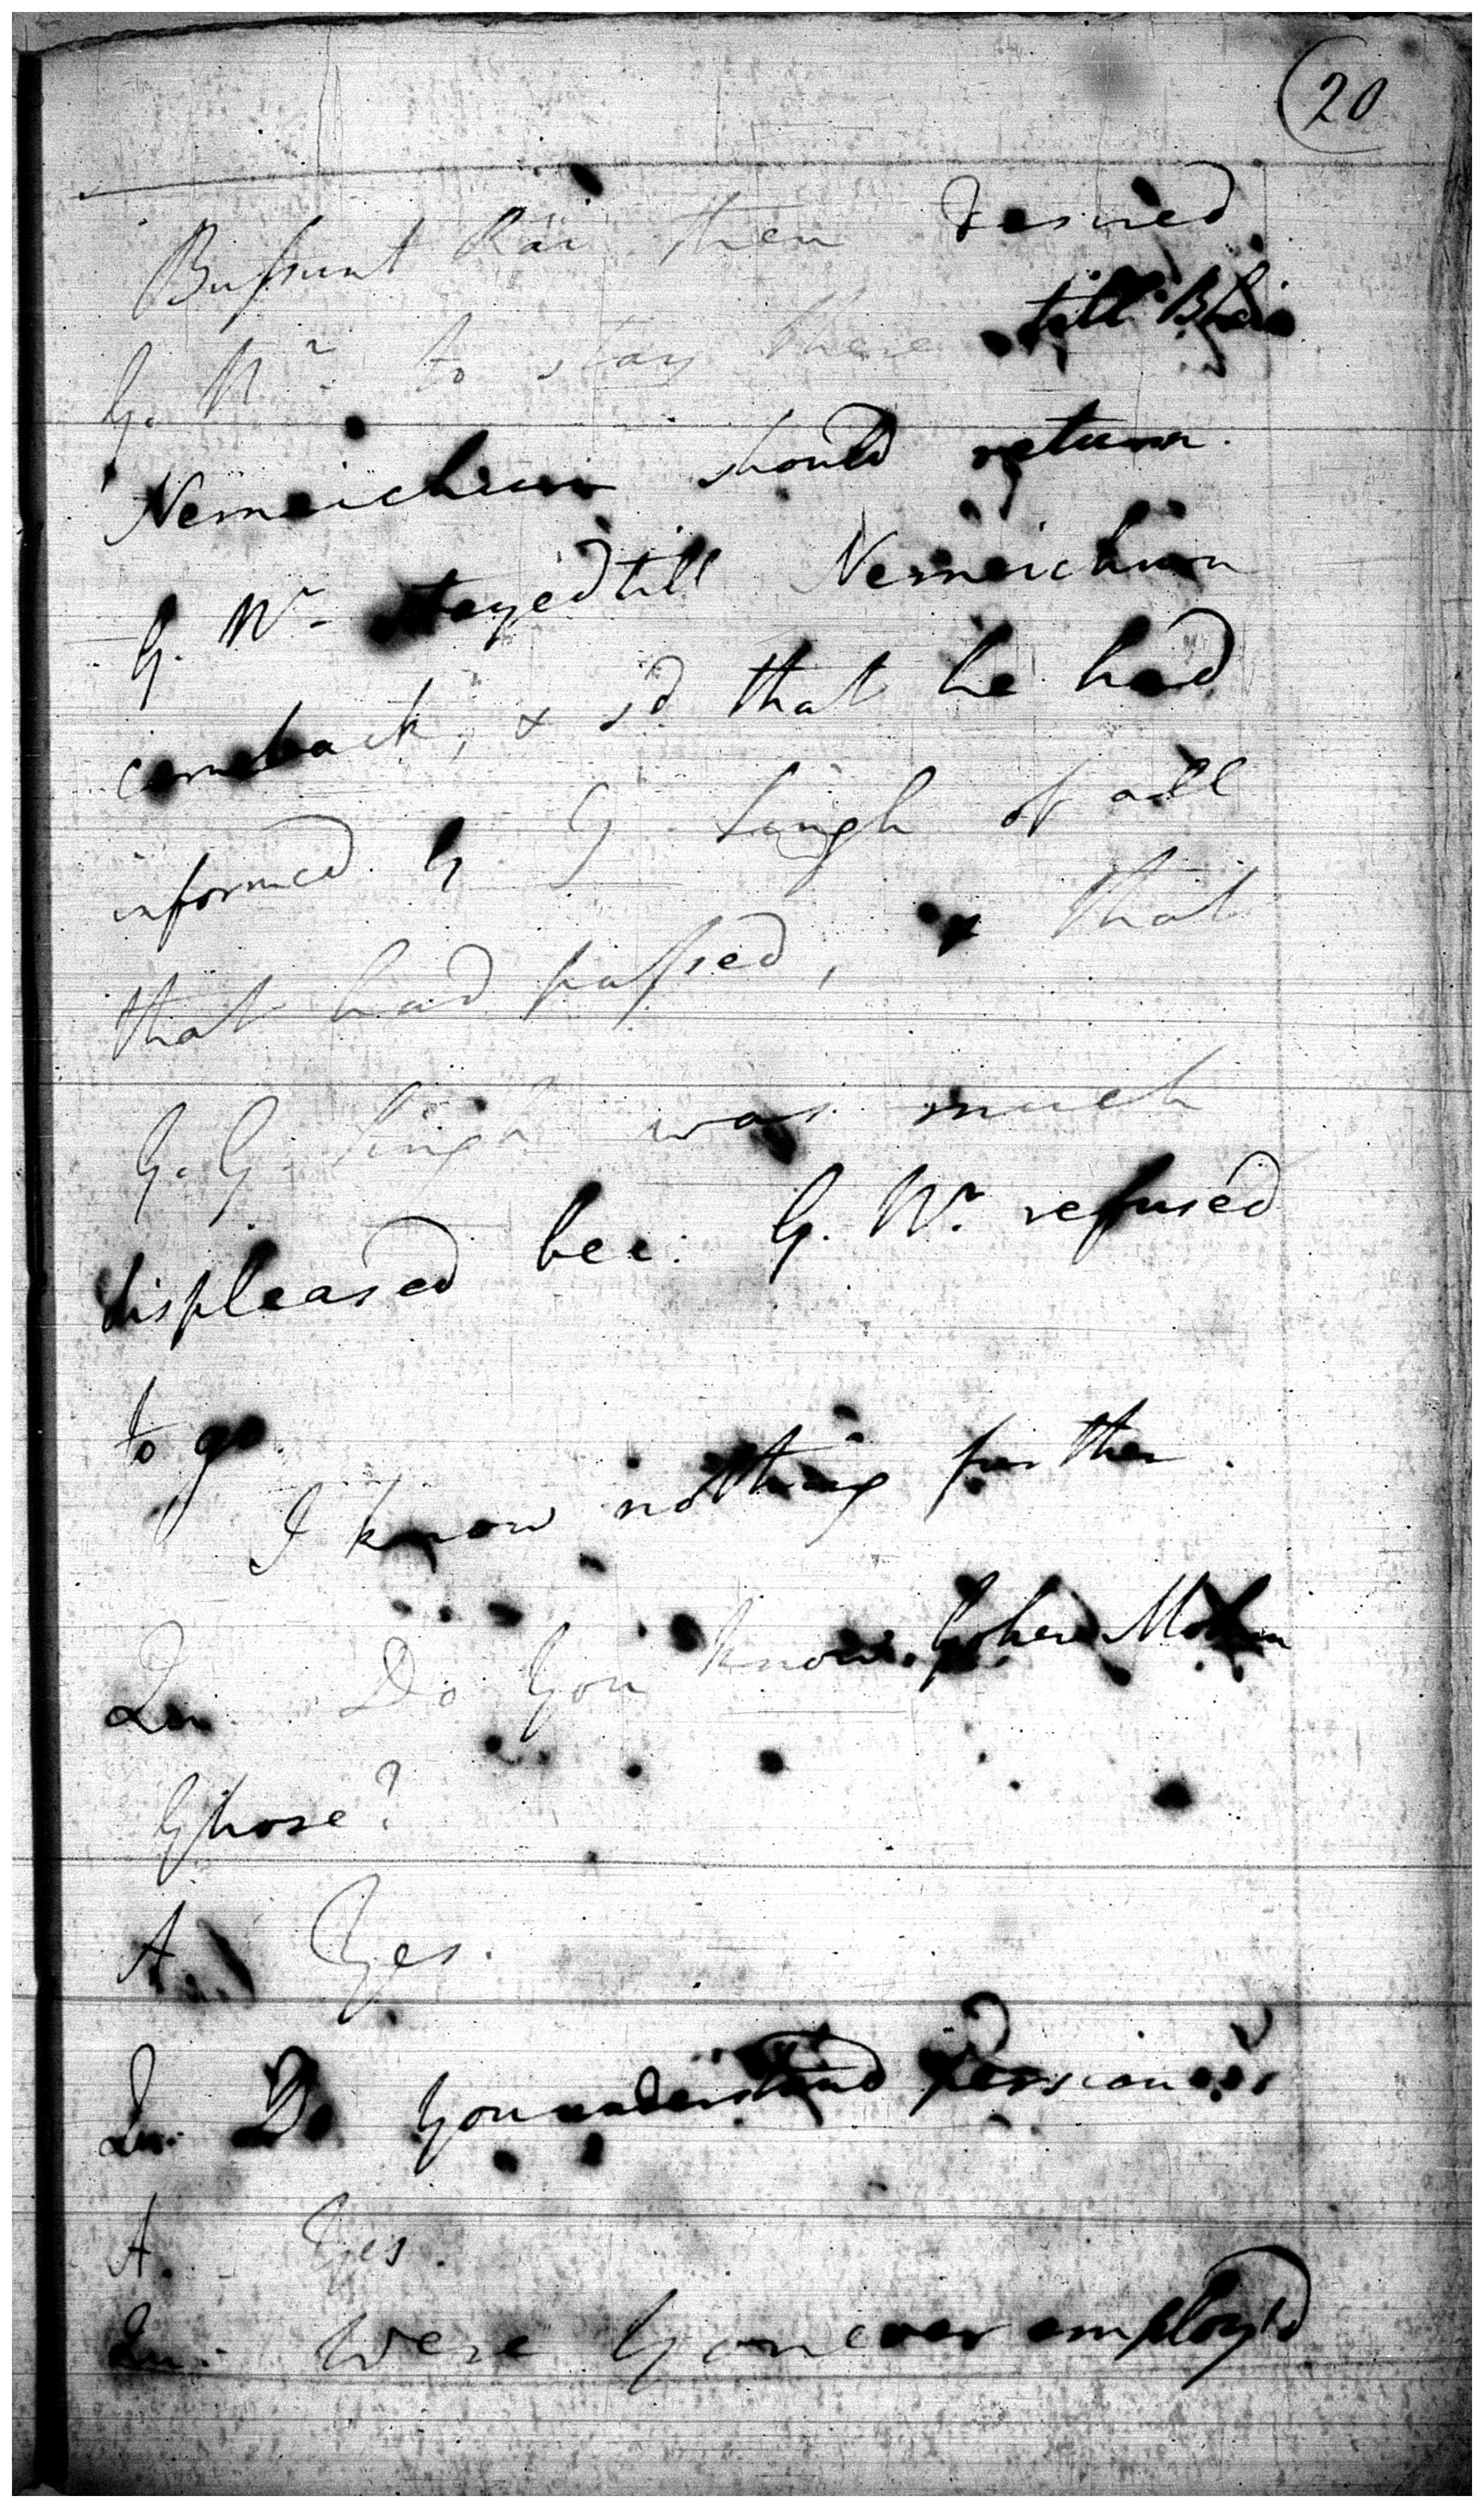 (20
Bussunt Rai then desired
G. Wr. to stay there till Bhai
Nemaichurn should return.
G. Wr. stayed till Nemaichurn
came back, & sd that he had
informed G G. Singh of all
that had passed, & that
G. G. Singh was much
displeased bec: G. Wr. refused
to go.
I know nothing further.
Qu. Do You know Mohun
Ghose?
A. Yes.
Qu. Do You understand Persian?
A. Yes.
Qu. Were You ever employ'd